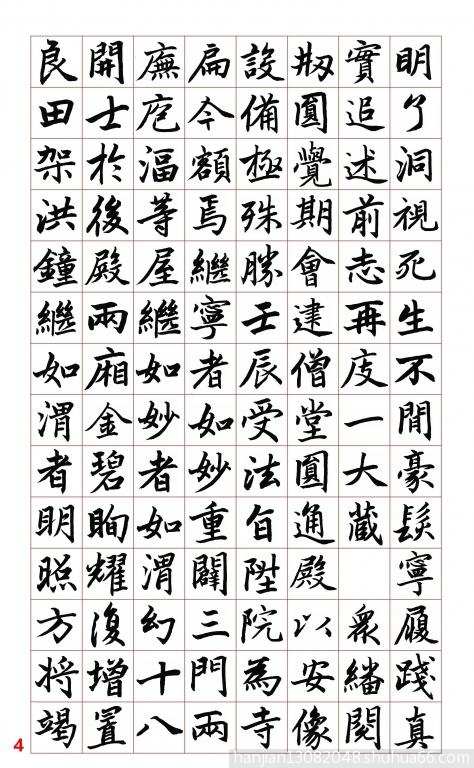 明了洞視死生不閒豪髮寧履踐真
實追述前志再度一大藏 眾繙閱
剏圓覺期會建僧堂圓通殿以安像
設備極殊勝壬辰受法旨陞院為寺
扁今額焉繼寧者如妙重闢三門兩
廡庖湢等屋繼如妙者如渭幻十八
開士於後殿兩廂金碧眴耀復增置
良田架洪鐘繼如渭者明照方將竭
4
hanjian13082048.shuhua66.com